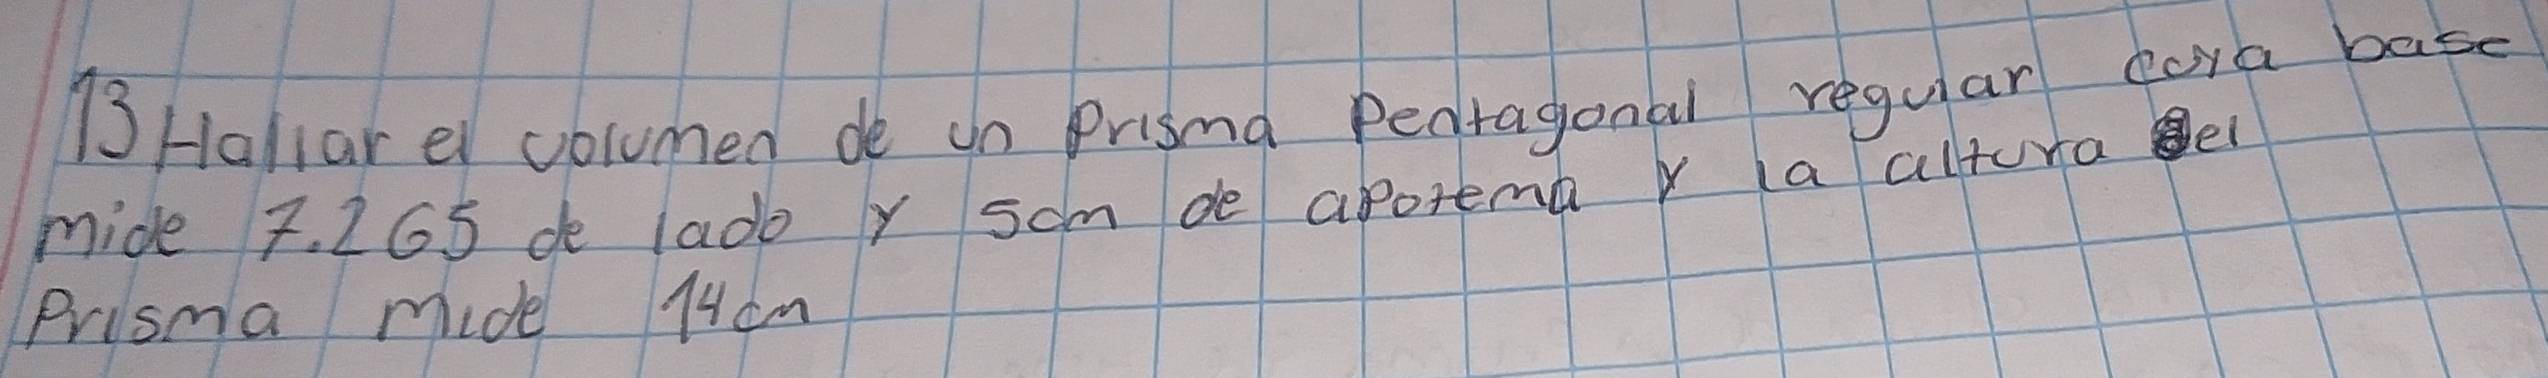 13 Hallar el volumen de un Prisma Pentagonal regular cuya base
mide 7.265 de lado y 5cm de apotema y la altura del
Prisma mide 14cm